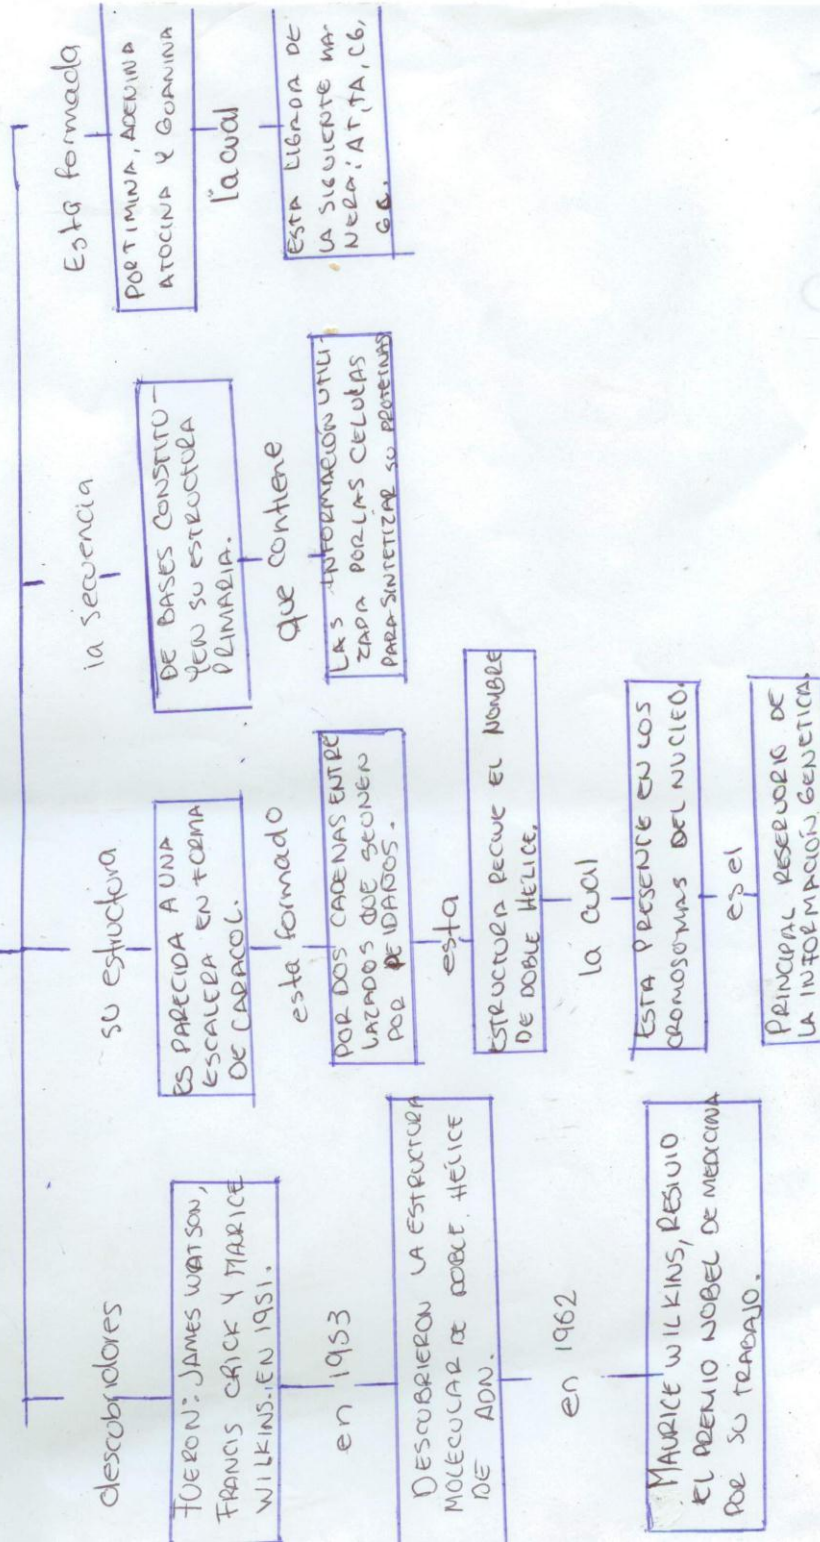 descubridores
FUERON: JAMES WATSON,
FRANCIS CRICK Y MARICE
WILKINS. EN 1951.
en 1953
DESCUBRIERON LA ESTRUCTURA
MOLECULAR DE DOBLE HÉLICE
DE ADN.
en 1962
MAURICE WILKINS, RESIVIO
EL PREMIO NOBEL DE MEDICINA
POR SU TRABAJO.
su estructura
ES PARECIDA A UNA
ESCALERA EN FORMA
DE CARACOL.
esta formado
POR DOS CADENAS ENTRE
LAZADOS QUE SEUNEN
POR PELDAÑOS.
esta
ESTRUCTURA RECIVE EL NOMBRE
DE DOBLE HELICE.
la cual
ESTA PRESENTE EN LOS
CROMOSOMAS DEL NUCLEO.
es el
PRINCIPAL RESERVORIO DE
LA INFORMACIÓN GENETICA.
la secuencia
DE BASES CONSTITU-
YEN SU ESTRUCTURA
PRIMARIA.
que contiene
LAS INFORMACIÓN UTILI-
ZADA POR LAS CELULAS
PARA SINTETIZAR SU PROTEINAS
Esta formada
POR TIMINA, ADENINA
ATOCINA Y GUANINA
la cual
ESTA LIGADA DE
LA SIGUIENTE MA-
NERA: AT, TA, CG,